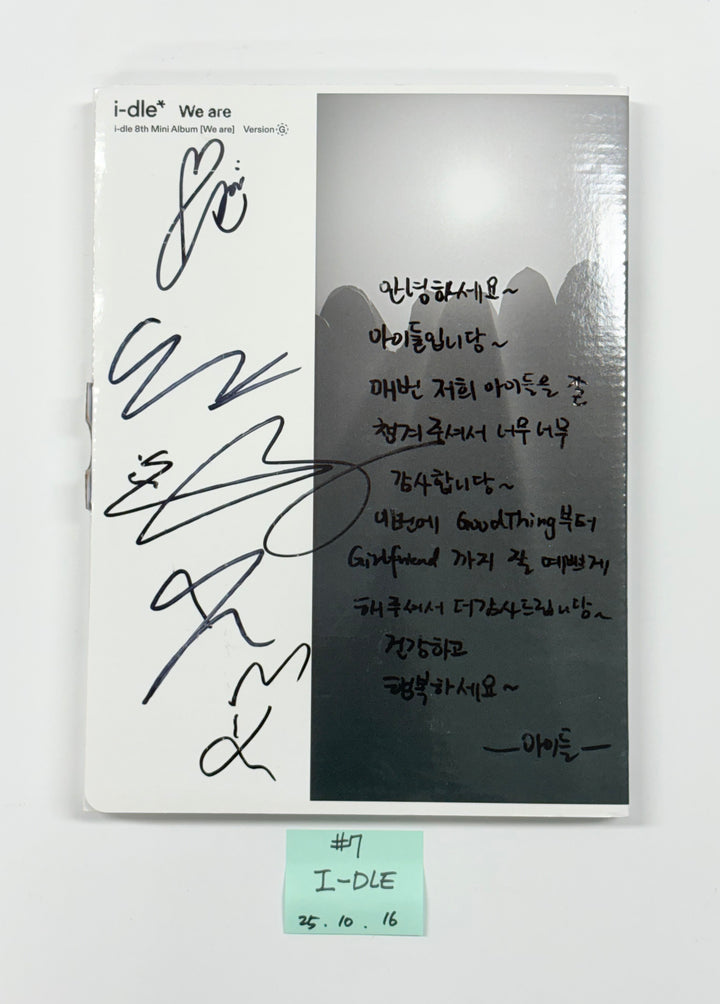 i-dle* We are
i-dle 8th Mini Album [We are] Version G
안녕하세요~
아이들입니당~
매번 저희 아이들을 잘
챙겨주셔서 너무너무
감사합니당~
이번에 GoodThing부터
Girlfriend 까지 잘 예쁘게
해주셔서 더감사드립니당~
건강하고
행복하세요~
—아이들—
#7
I-DLE
25.10.16